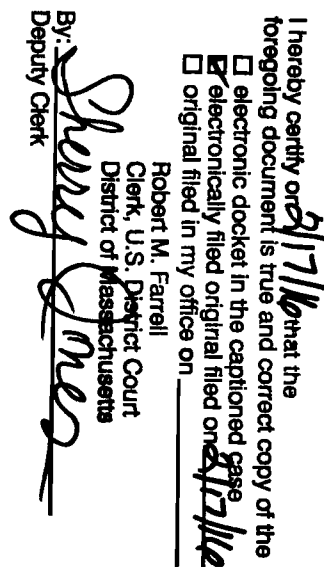 I hereby certify on 2/17/16 that the
foregoing document is true and correct copy of the
☐ electronic docket in the captioned case
☑ electronically filed original filed on 2/17/16
☐ original filed in my office on ________
Robert M. Farrell
Clerk, U.S. District Court
District of Massachusetts
By: Sherry Jones
Deputy Clerk